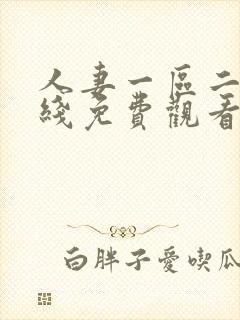 人妻一區二
綫免費觀看
白胖子愛喫瓜